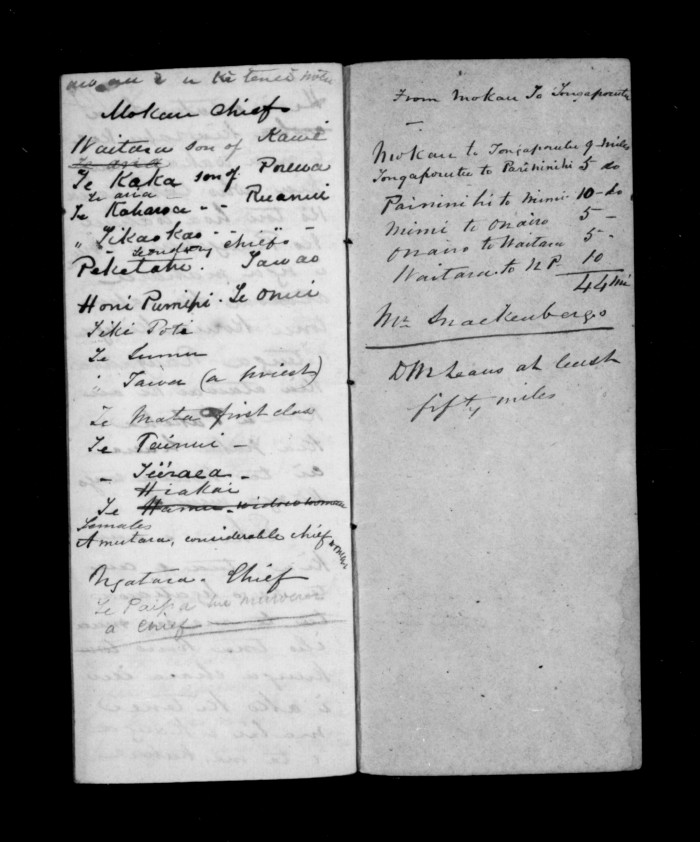 ki tenei
Mokau Chiefs
Waitara son of Rawe
Te aria
Te Kaka son of Porewa
Te aria
Te Kaharoa - - Ruanui
" Tikaokao - -
Secondary chiefs
Peketahi. Tawao
Honi Pumipi. Te Onui
Tiki Poti
Te Sumu
" Taiwa (a priest)
Te Mata first class
Te Tainui -
- Tiiraea -
Hiakai
Te Hamu - widow woman
Females
Amutara, considerable chief woman
Ngatara - Chief
Te Paipa
a chief
From Mokau To Tongaporutu
-
Mokau to Tongaporutu 9 miles
Tongaporutu to Parininihi 5 do
Parininihi to Mimi 10 - do
Mimi to Onairo 5 -
Onairo to Waitara 5 -
Waitara to N P. 10
44 Mi
Mr Snackenbergs
D McLeans at least
fifty miles